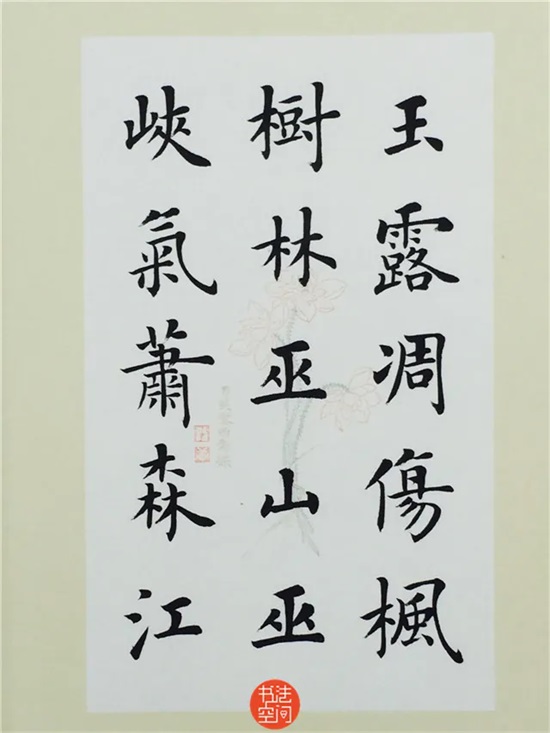 玉露凋傷楓
樹林巫山巫
峽氣蕭森江
书法
空间